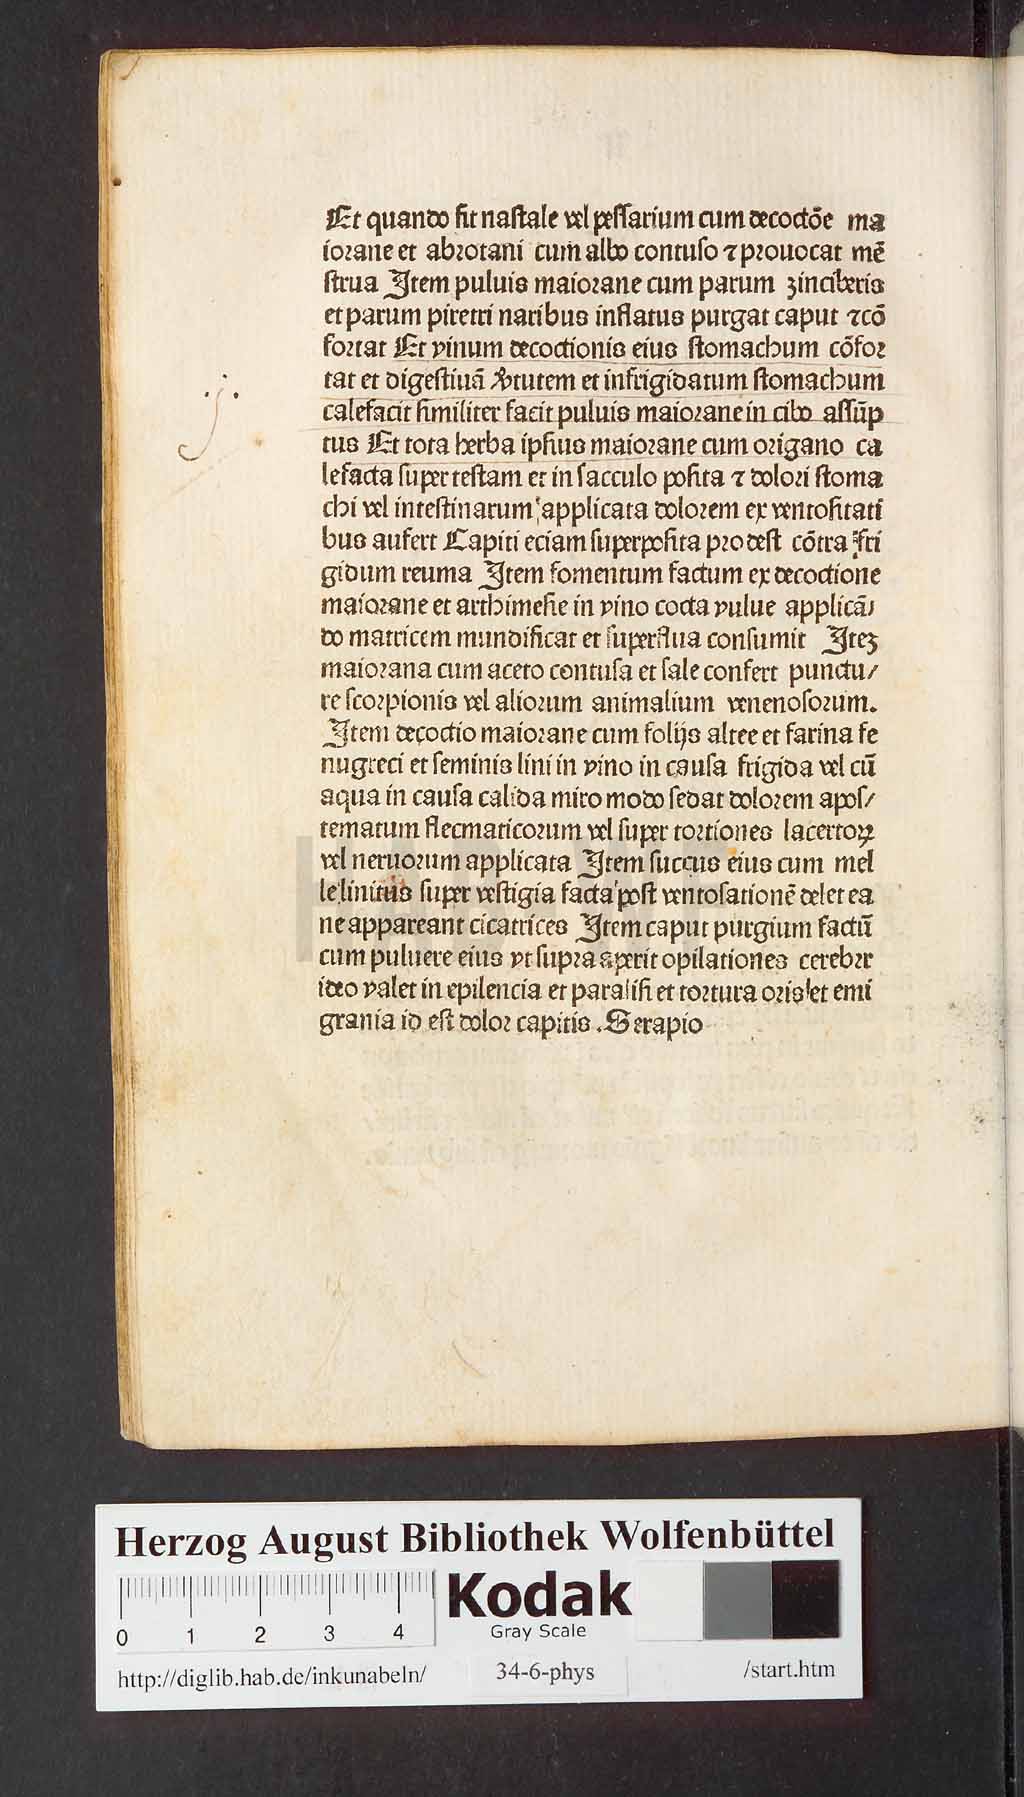 Et quando fit naſtale vel peſſarium cum decoctōe ma
iorane et abrotani cum albo contuſo ⁊ prouocat mē
ſtrua Item puluis maiorane cum parum zinciberis
et parum piretri naribus inflatus purgat caput ⁊ cō
fortat Et vinum decoctionis eius ſtomachum cōfor
tat et digeſtiuā v̓tutem et infrigidatum ſtomachum
calefacit ſimiliter facit puluis maiorane in cibo aſſūp
tus Et tota herba ipſius maiorane cum origano ca
lefacta ſuper teſtam et in ſacculo poſita ⁊ dolori ſtoma
chi vel inteſtinarum applicata dolorem ex ventoſitati
bus aufert Capiti eciam ſuperpoſita prodeſt cōtra fri
gidum reuma Item fomentum factum ex decoctione
maiorane et arthimeſie in vino cocta vulue applicā/
do matricem mundificat et ſuperflua conſumit Iteꝫ
maiorana cum aceto contuſa et ſale confert punctu/
re ſcorpionis vel aliorum animalium venenoſorum.
Item decoctio maiorane cum folijs altee et farina fe
nugreci et ſeminis lini in vino in cauſa frigida vel cū
aqua in cauſa calida miro modo ſedat dolorem apoſ/
tematum flecmaticorum vel ſuper tortiones lacertoꝝ
vel neruorum applicata Item ſuccus eius cum mel
le linitus ſuper veſtigia facta poſt ventoſationē delet ea
ne appareant cicatrices Item caput purgium factū
cum puluere eius vt ſupra aperit opilationes cerebri
ideo valet in epilencia et paraliſi et tortura oris et emi
grania id eſt dolor capitis . Serapio
Herzog August Bibliothek Wolfenbüttel
0 1 2 3 4
Kodak
Gray Scale
http://diglib.hab.de/inkunabeln/ 34-6-phys /start.htm